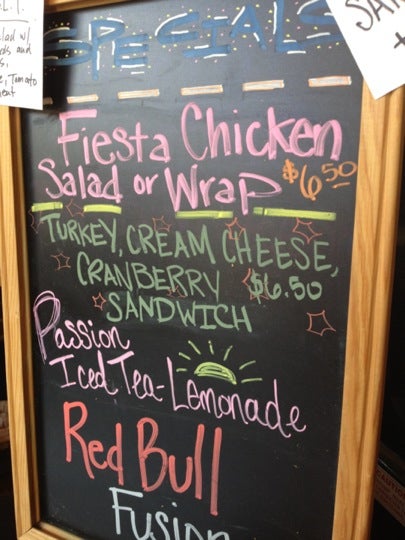 SPECIALS
Fiesta Chicken
Salad or Wrap $6.50
TURKEY, CREAM CHEESE,
CRANBERRY $6.50
SANDWICH
Passion
Iced Tea-Lemonade
Red Bull
Fusion